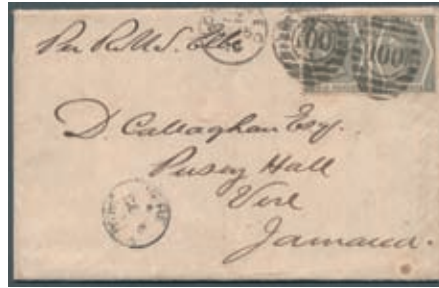 Per R.M.S. Elbe
100 100
D. Callaghan Esq.
Pusey Hall
Vere
Jamaica.